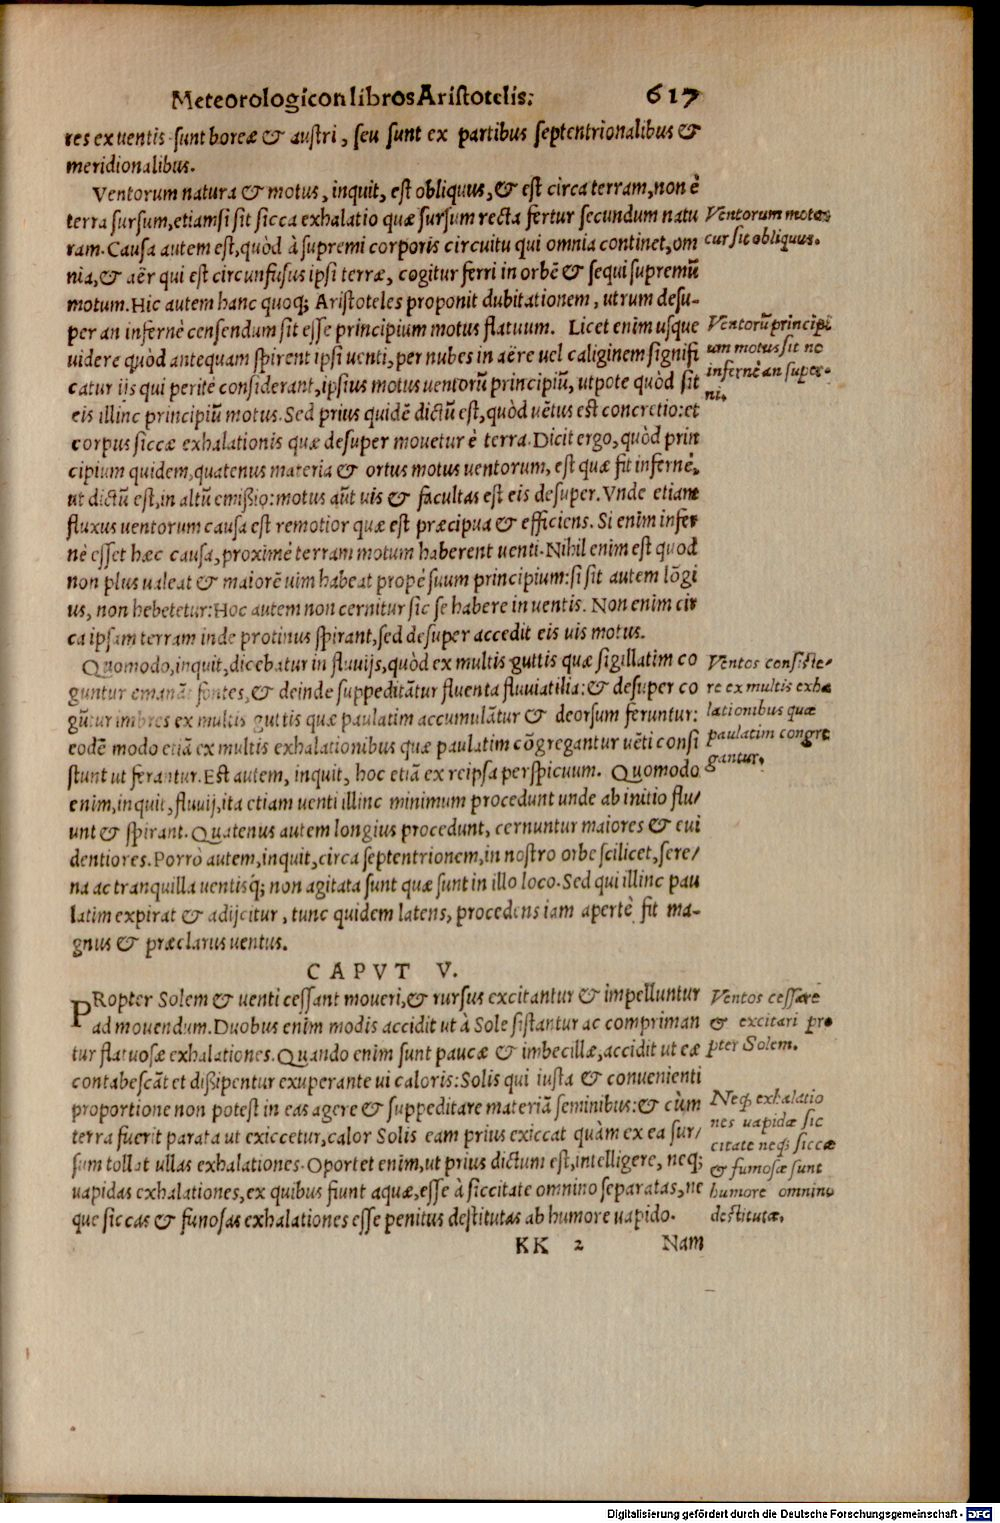 Meteorologicon libros Aristotelis. 617
res ex uentis sunt boreæ & austri, seu sunt ex partibus septentrionalibus &
meridionalibus.
Ventorum natura & motus, inquit, est obliquus, & est circa terram, non è
terra sursum, etiamsi sit sicca exhalatio quæ sursum recta fertur secundum natu
ram. Causa autem est, quòd à supremi corporis circuitu qui omnia continet, om
nia, & aër qui est circunfusus ipsi terræ, cogitur ferri in orbē & sequi supremū
motum. Hic autem hanc quoq; Aristoteles proponit dubitationem, utrum desu-
per an infernè censendum sit esse principium motus flatuum. Licet enim usque
uidere quòd antequam spirent ipsi uenti, per nubes in aëre uel caliginem signifi
catur iis qui peritè considerant, ipsius motus uentorū principiū, utpote quòd sit
eis illinc principiū motus. Sed prius quidē dictū est, quòd uētus est concretio: et
corpus siccæ exhalationis quæ desuper mouetur è terra. Dicit ergo, quòd prin
cipium quidem, quatenus materia & ortus motus uentorum, est quæ fit infernè,
ut dictū est, in altū emißio: motus aūt uis & facultas est eis desuper. Vnde etiam
fluxus uentorum causa est remotior quæ est præcipua & efficiens. Si enim infer
nè esset hæc causa, proximè terram motum haberent uenti. Nihil enim est quod
non plus ualeat & maiorē uim habeat propè suum principium: si sit autem lōgi
us, non hebetetur: Hoc autem non cernitur sic se habere in uentis. Non enim cir
ca ipsam terram inde protinus spirant, sed desuper accedit eis uis motus.
Quomodo, inquit, dicebatur in fluuijs, quòd ex multis guttis quæ sigillatim co
guntur emanāt fontes, & deinde suppeditātur fluenta fluuiatilia: & desuper co
gūtur imbres ex multis guttis quæ paulatim accumulātur & deorsum feruntur:
eodē modo etiā ex multis exhalationibus quæ paulatim cōgregantur uēti consi
stunt ut ferantur. Est autem, inquit, hoc etiā ex reipsa perspicuum. Quomodo
enim, inquit, fluuij, ita etiam uenti illinc minimum procedunt unde ab initio flu/
unt & spirant. Quatenus autem longius procedunt, cernuntur maiores & eui
dentiores. Porrò autem, inquit, circa septentrionem, in nostro orbe scilicet, sere/
na ac tranquilla uentisq́; non agitata sunt quæ sunt in illo loco. Sed qui illinc pau
latim expirat & adijcitur, tunc quidem latens, procedens iam apertè fit ma-
gnus & præclarus uentus.
CAPVT V.
PRopter Solem & uenti cessant moueri, & rursus excitantur & impelluntur
ad mouendum. Duobus enim modis accidit ut à Sole sistantur ac compriman
tur flatuosæ exhalationes. Quando enim sunt paucæ & imbecillæ, accidit ut eæ
contabescāt et dißipentur exuperante ui caloris: Solis qui iusta & conuenienti
proportione non potest in eas agere & suppeditare materiā seminibus: & cùm
terra fuerit parata ut exiccetur, calor Solis eam prius exiccat quàm ex ea sur/
sum tollat ullas exhalationes. Oportet enim, ut prius dictum est, intelligere, neq;
uapidas exhalationes, ex quibus fiunt aquæ, esse à siccitate omnino separatas, ne
que siccas & fumosas exhalationes esse penitus destitutas ab humore uapido.
KK 2 Nam
Ventorum motus
cur sit obliquus.
Ventorū principi
um motus sit ne
infernè an super-
ni.
Ventos consiste/
re ex multis exha
lationibus quæ
paulatim congre
gantur.
Ventos cessare
& excitari pro
pter Solem.
Neq; exhalatio
nes uapidæ sic
citate neq; siccæ
& fumosæ sunt
humore omnino
destitutæ.
Digitalisierung gefördert durch die Deutsche Forschungsgemeinschaft - DFG